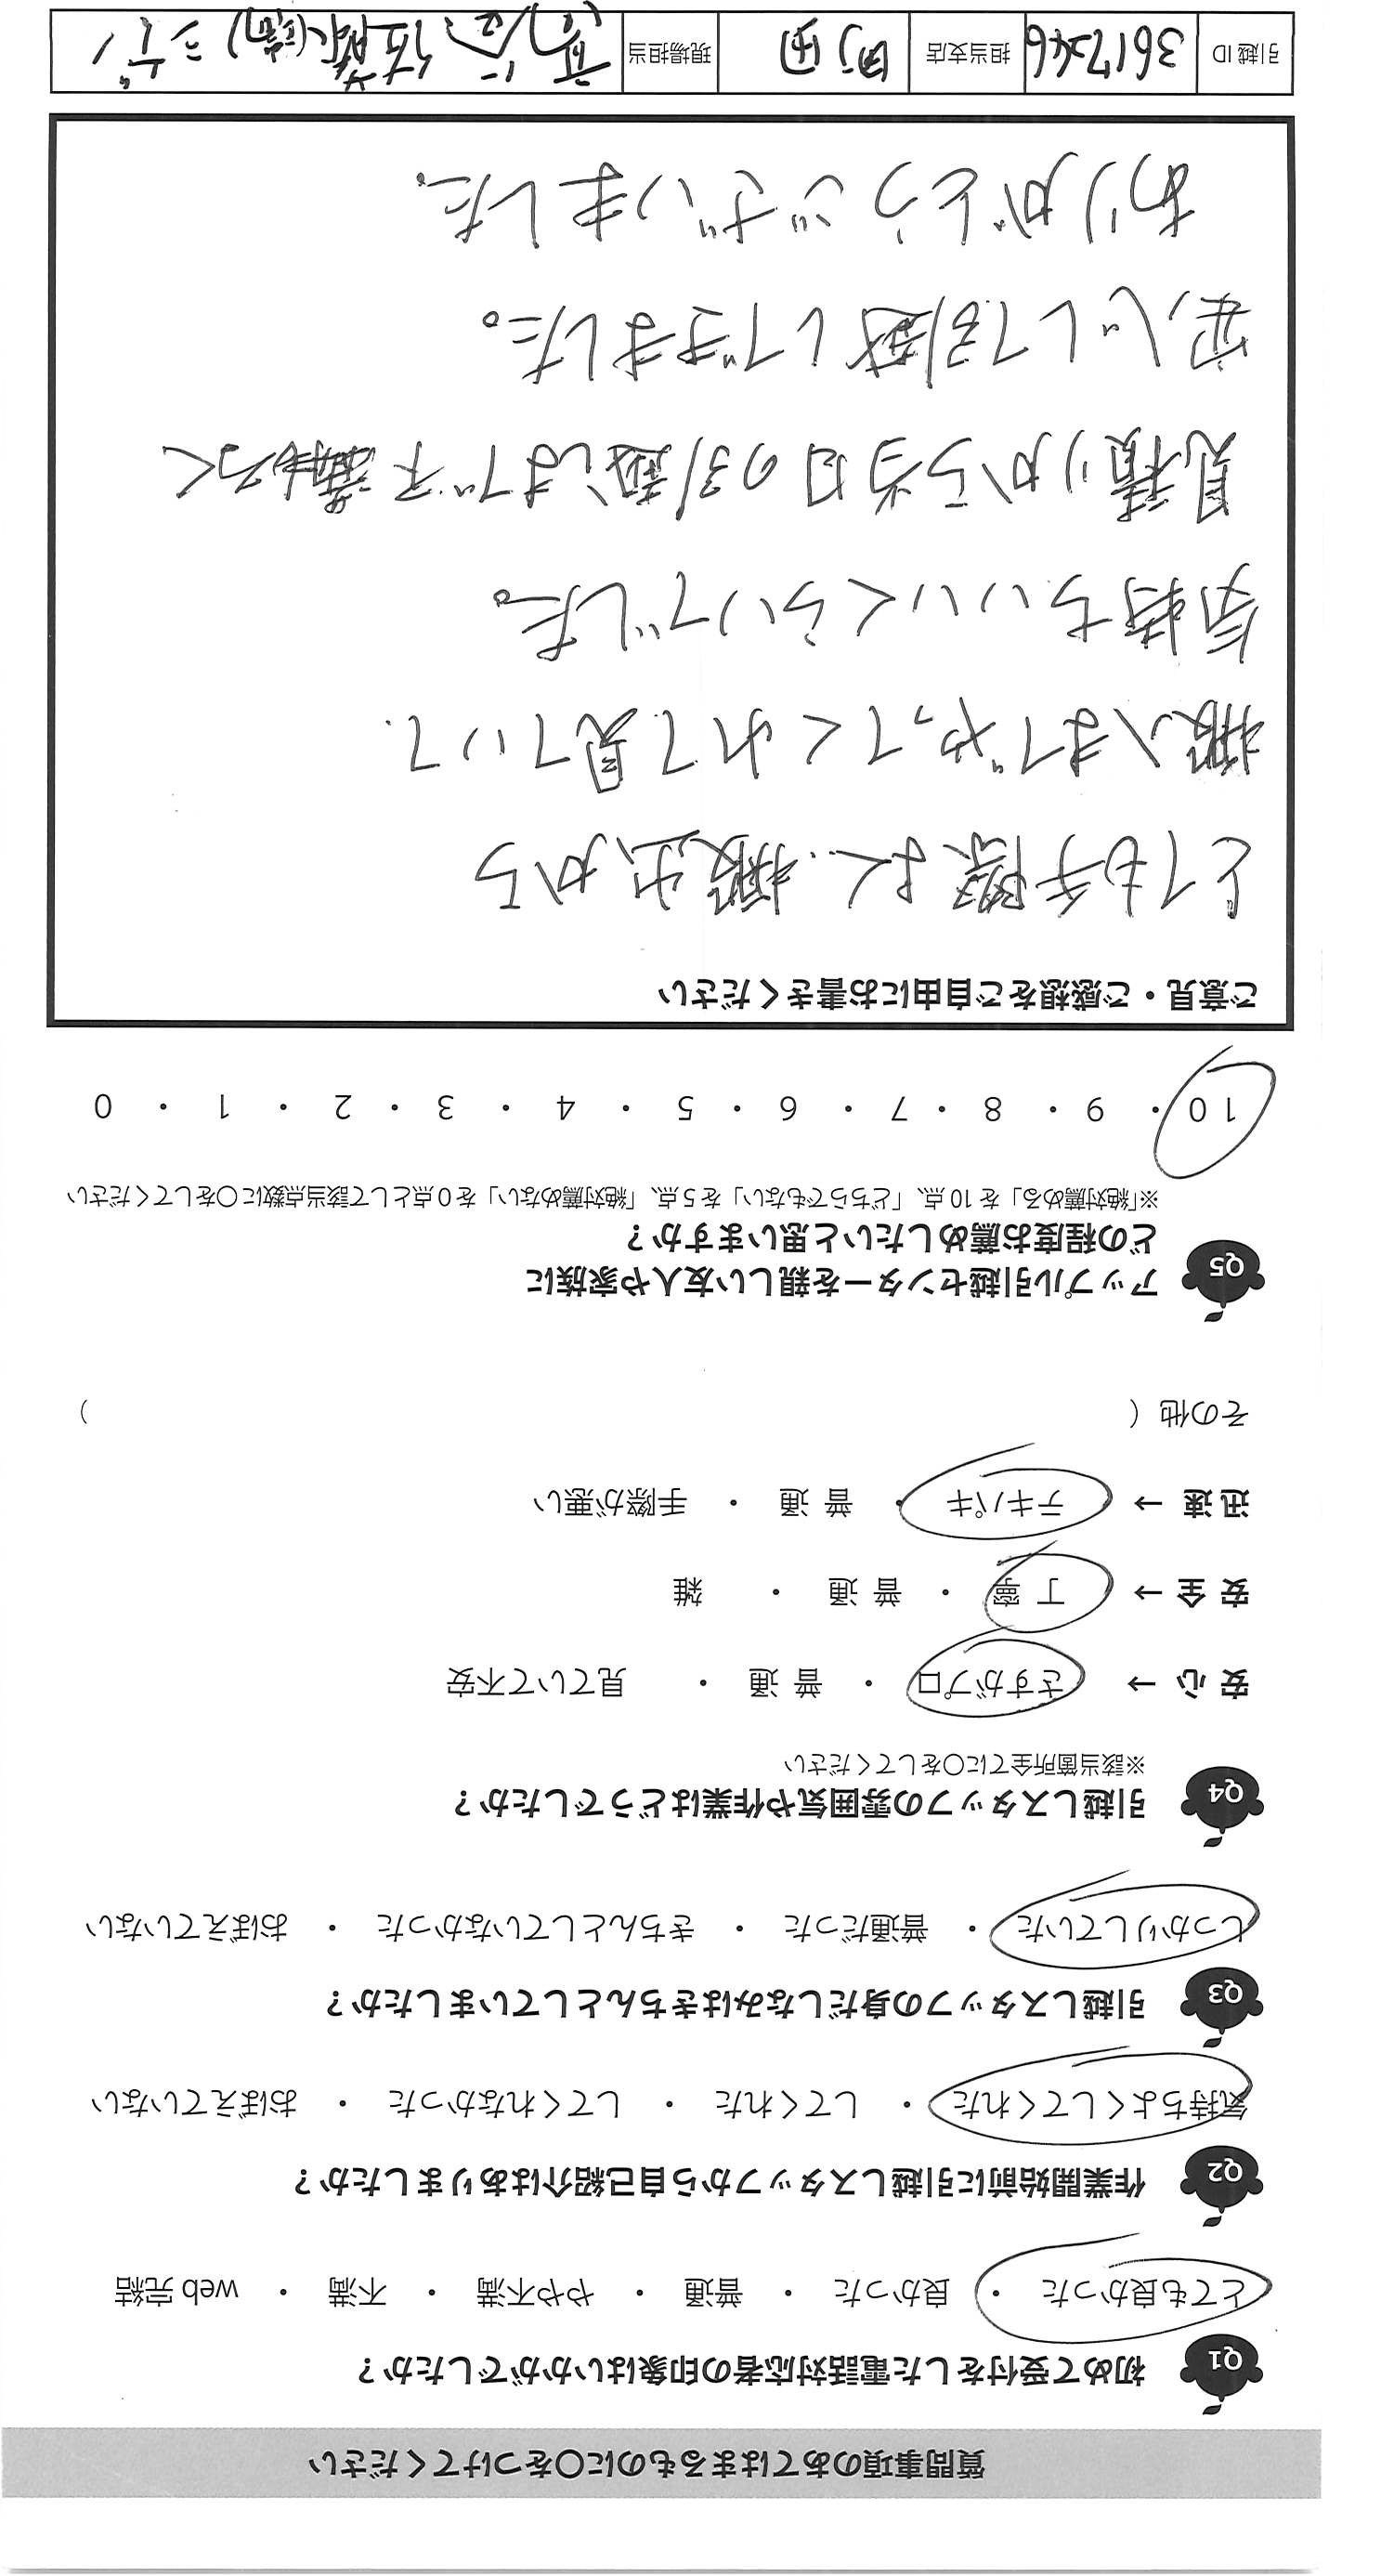 質問事項のあてはまるものに〇をつけてください
Q1 初めて受付をした電話対応者の印象はいかがでしたか？
とても良かった ・ 良かった ・ 普通 ・ やや不満 ・ 不満 ・ web 完結
Q2 作業開始前に引越しスタッフから自己紹介はありましたか？
気持ちよくしてくれた ・ してくれた ・ してくれなかった ・ おぼえていない
Q3 引越しスタッフの身だしなみはきちんとしていましたか？
しっかりしていた ・ 普通だった ・ きちんとしていなかった ・ おぼえていない
Q4 引越しスタッフの雰囲気や作業はどうでしたか？
※該当箇所全てに〇をしてください
安心 → さすがプロ ・ 普通 ・ 見ていて不安
安全 → 丁寧 ・ 普通 ・ 雑
迅速 → テキパキ ・ 普通 ・ 手際が悪い
その他（ ）
Q5 アップル引越センターを親しい友人や家族に
どの程度お薦めしたいと思いますか？
※「絶対薦める」を10点、「どちらでもない」を5点、「絶対薦めない」を0点として該当点数に〇をしてください
10 ・ 9 ・ 8 ・ 7 ・ 6 ・ 5 ・ 4 ・ 3 ・ 2 ・ 1 ・ 0
ご意見・ご感想をご自由にお書きください
とても手際よく、搬出から
搬入までやってくれて見ていて
気持ちいいくらいでした。
見積りから当日の引越しまで不満もなく
安心して引越しできました。
ありがとうございました。
引越ID 3617246 担当支店 町田 現場担当